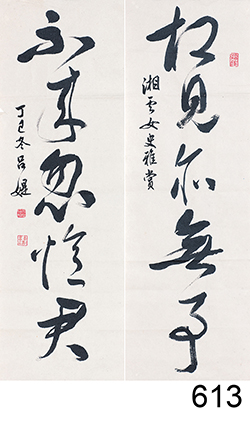 相見亦無事
湘云女史雅賞
不來忽憶君
丁巳冬呂
613